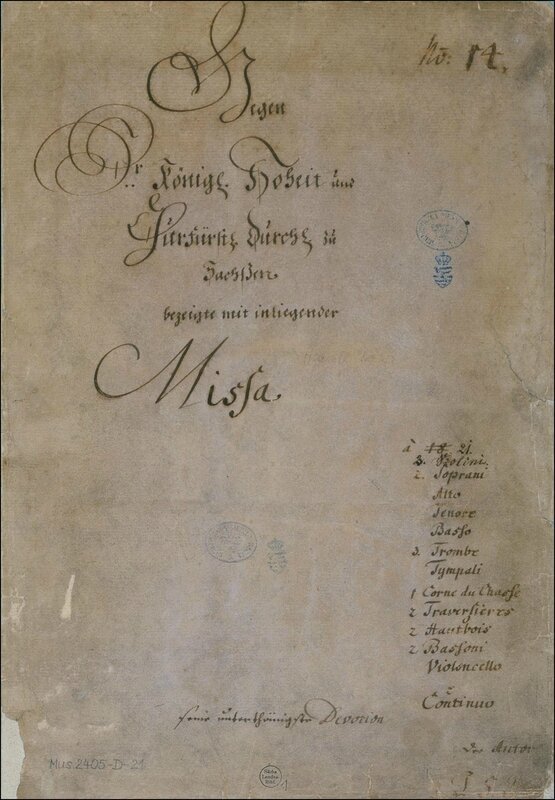 No: 14.
Gegen
Sr Königl. Hoheit und
Churfürstl. Durchl. zu
Sachßen
bezeigte mit inliegender
Missa
à 18 21.
3. Violini.
2. Soprani
Alto
Tenore
Basso
3. Trombe
Tympali
1 Corne du Chasse
2 Traversieres
2 Hautbois
2 Bassoni
Violoncello
e
Continuo
seine unterthänigste Devotion
der Autor
J. S. B
Mus. 2405-D-21
Sächs.
Landes-
Bibl.
1